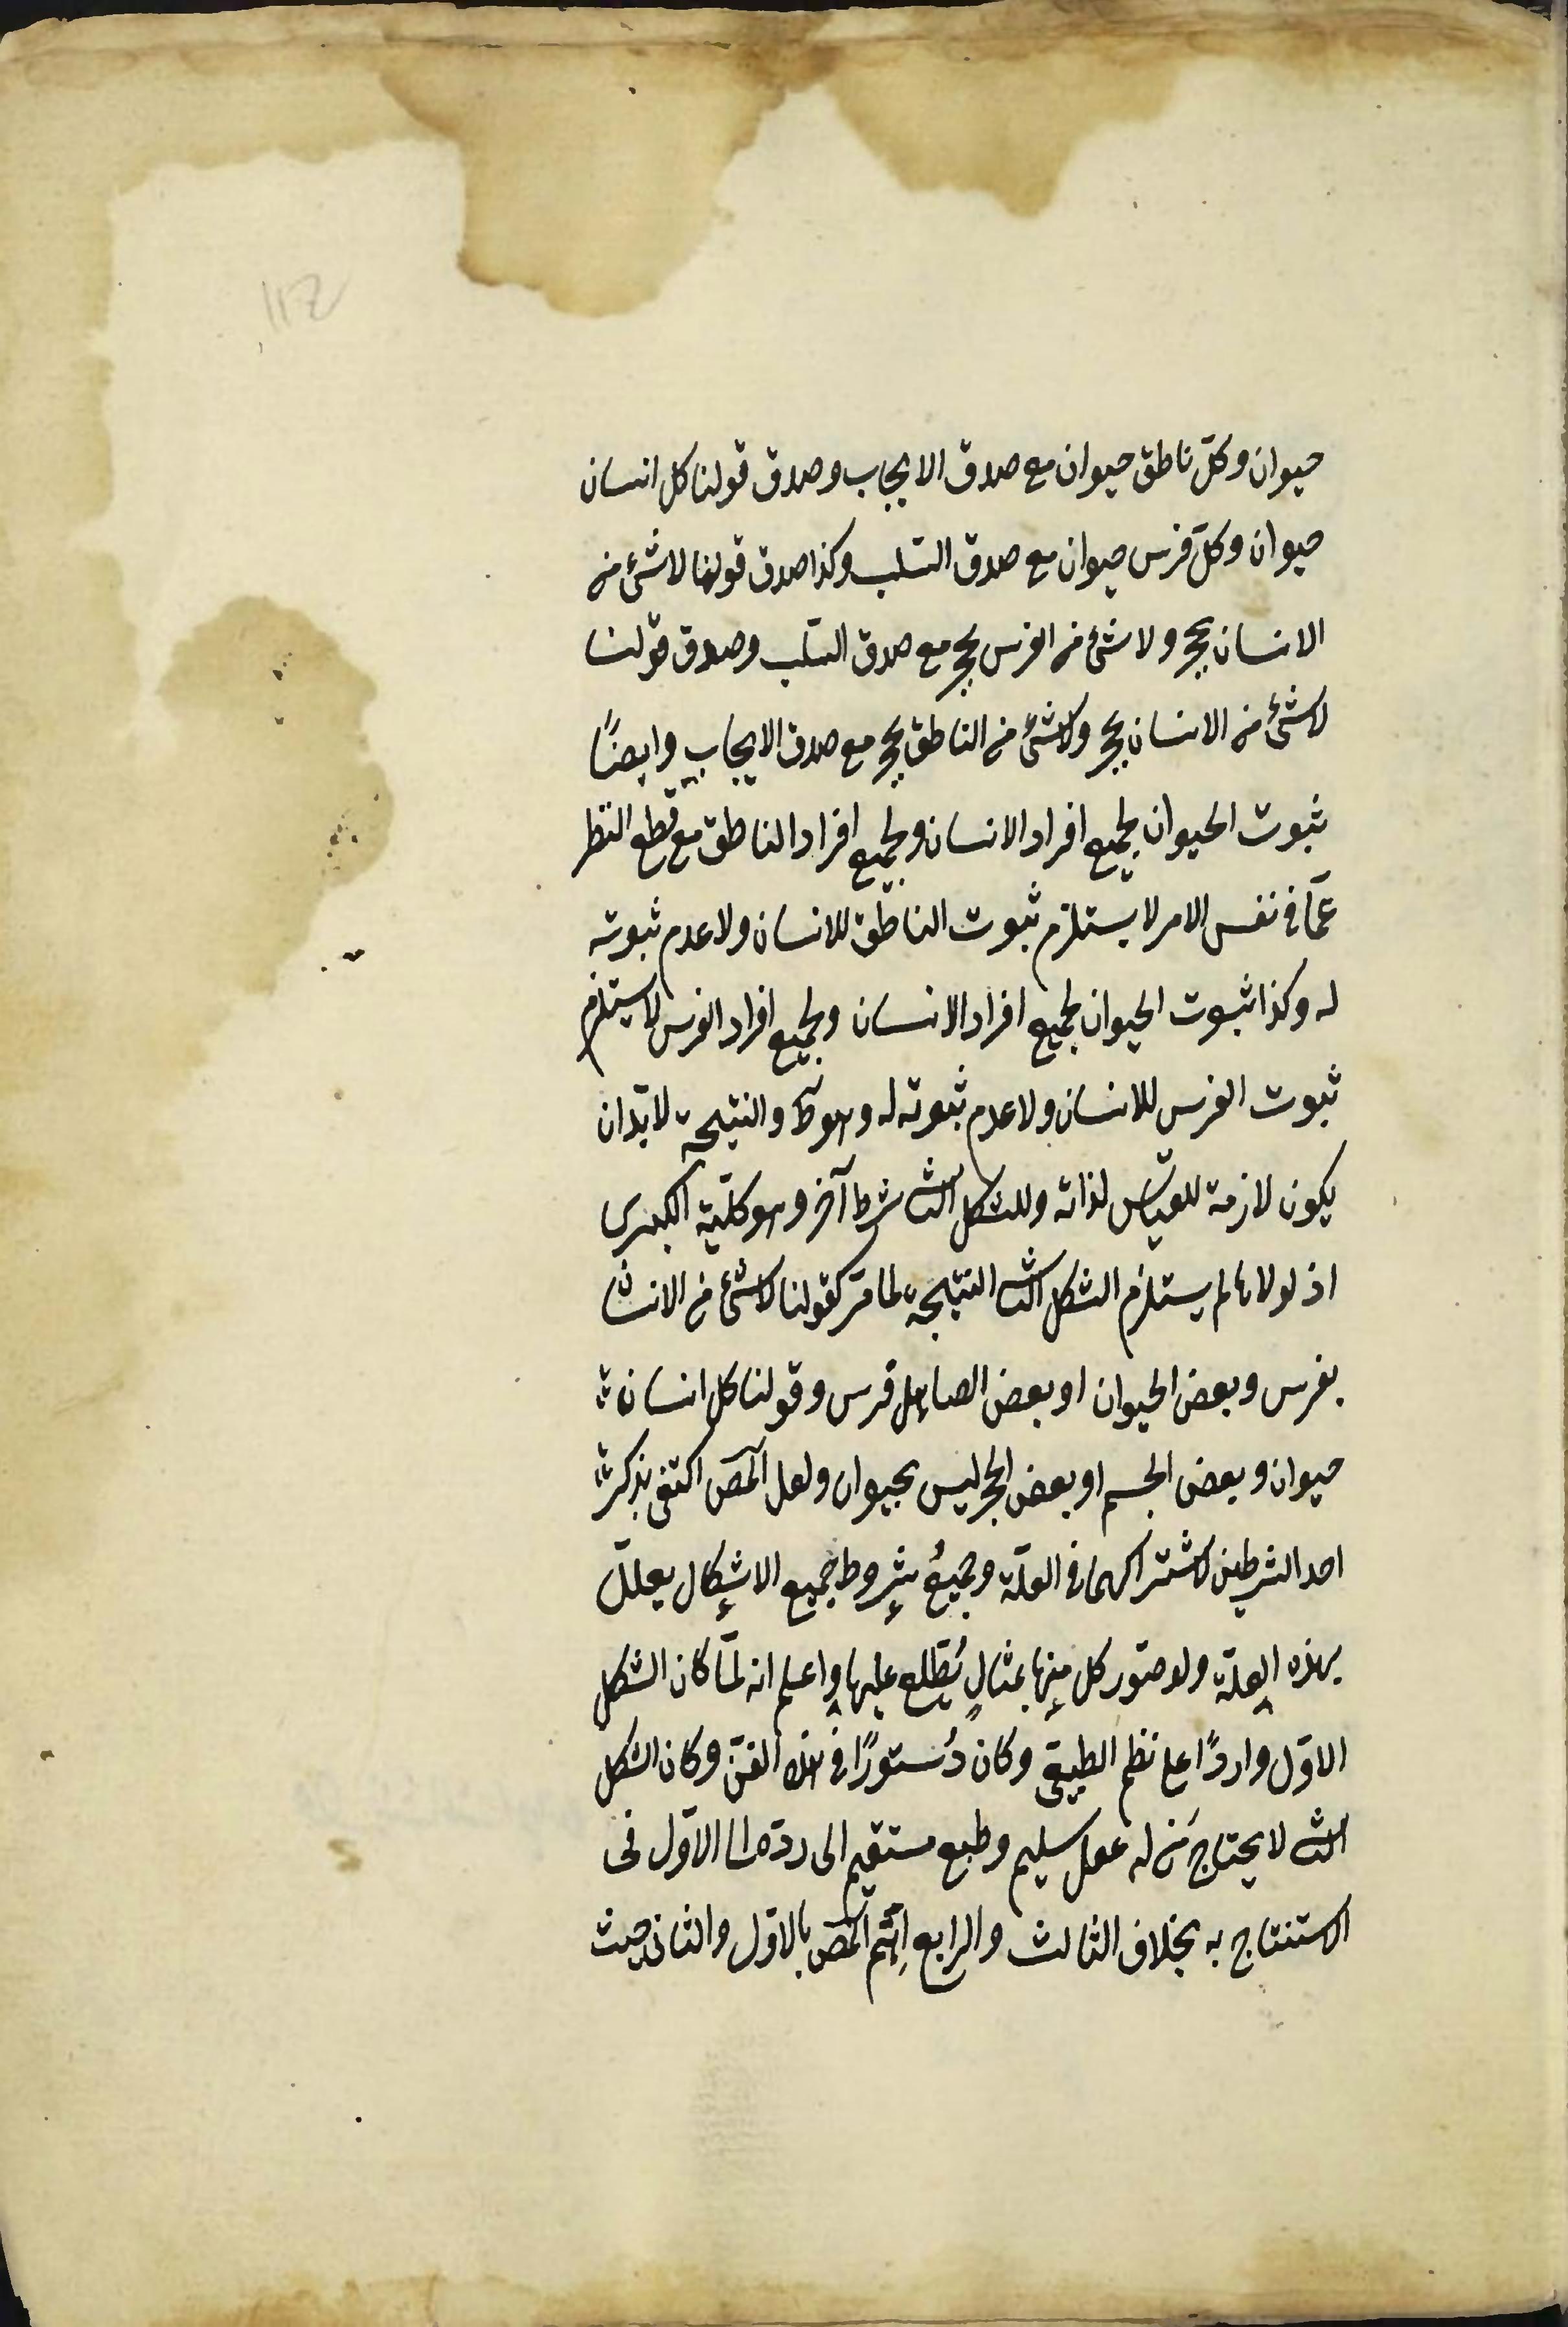 حيوان وكلّ ناطق حيوان مع صدق الايجاب وصدق قولنا كل انسان
حيوان وكلّ فرس حيوان مع صدق السّلب وكذا صدق قولنا لا شئ من
الانسان بحجر ولا شئ من الفرس بحجر مع صدق السّلب وصدق قولنا
لا شئ من الانسان بحجر ولا شئ من الناطق بحجر مع صدق الايجاب وايضًا
ثبوت الحيوان لجميع افراد الانسان ولجميع افراد الناطق مع قطع النظر
عمّا في نفس الامر لا يستلزم ثبوت الناطق للانسان ولا عدم ثبوته
له وكذا ثبوت الحيوان لجميع افراد الانسان ولجميع افراد الفرس لا يستلزم
ثبوت الفرس للانسان ولا عدم ثبوته له وهو ظ والنتيجة لا بدّ ان
يكون لازمة للقياس لذاته وللشكل الثا شرط آخر وهو كليّة الكبرى
اذ لولاها لم يستلزم الشكل الثا النتيجة لما مرّ كقولنا لا شئ من الانسان
بفرس وبعض الحيوان او بعض الصاهل فرس وقولنا كل انسان
حيوان وبعض الجسم او بعض الحجر ليس بحيوان ولعل المص اكتفى بذكر
احد الشرطين لاشتراكهما في العلّة وجميعُ شروط جميع الاشكال يعلّل
بهذه العلة ولو صوّر كل منها بمثالٍ يُطّلع عليها واعلم انه لمّا كان الشكل
الاوّل واردًا على نظم الطبيعى وكان دُستورًا في هذا الفنّ وكان الشكل
الثا لا يحتاج مَن له عقل سليم وطبع مستقيم الى ردّه الى الاوّل فى
الاستنتاج به بخلاف الثالث والرابع اهتم المص بالاوّل والثانى حيث